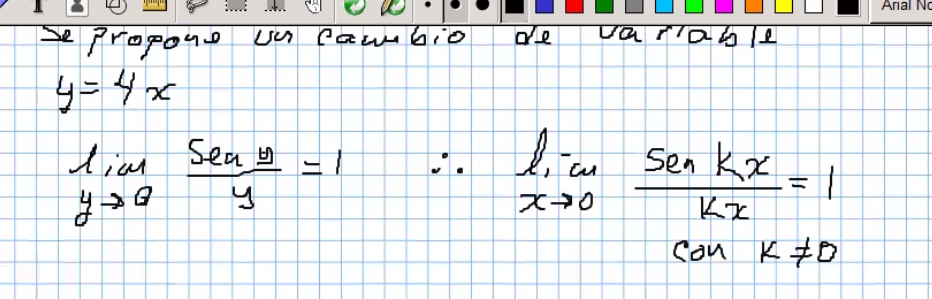 Se propone un cambio de variable
y = 4x
lim y→0 sen y / y = 1 ∴ lim x→0 sen kx / kx = 1
con k ≠ 0